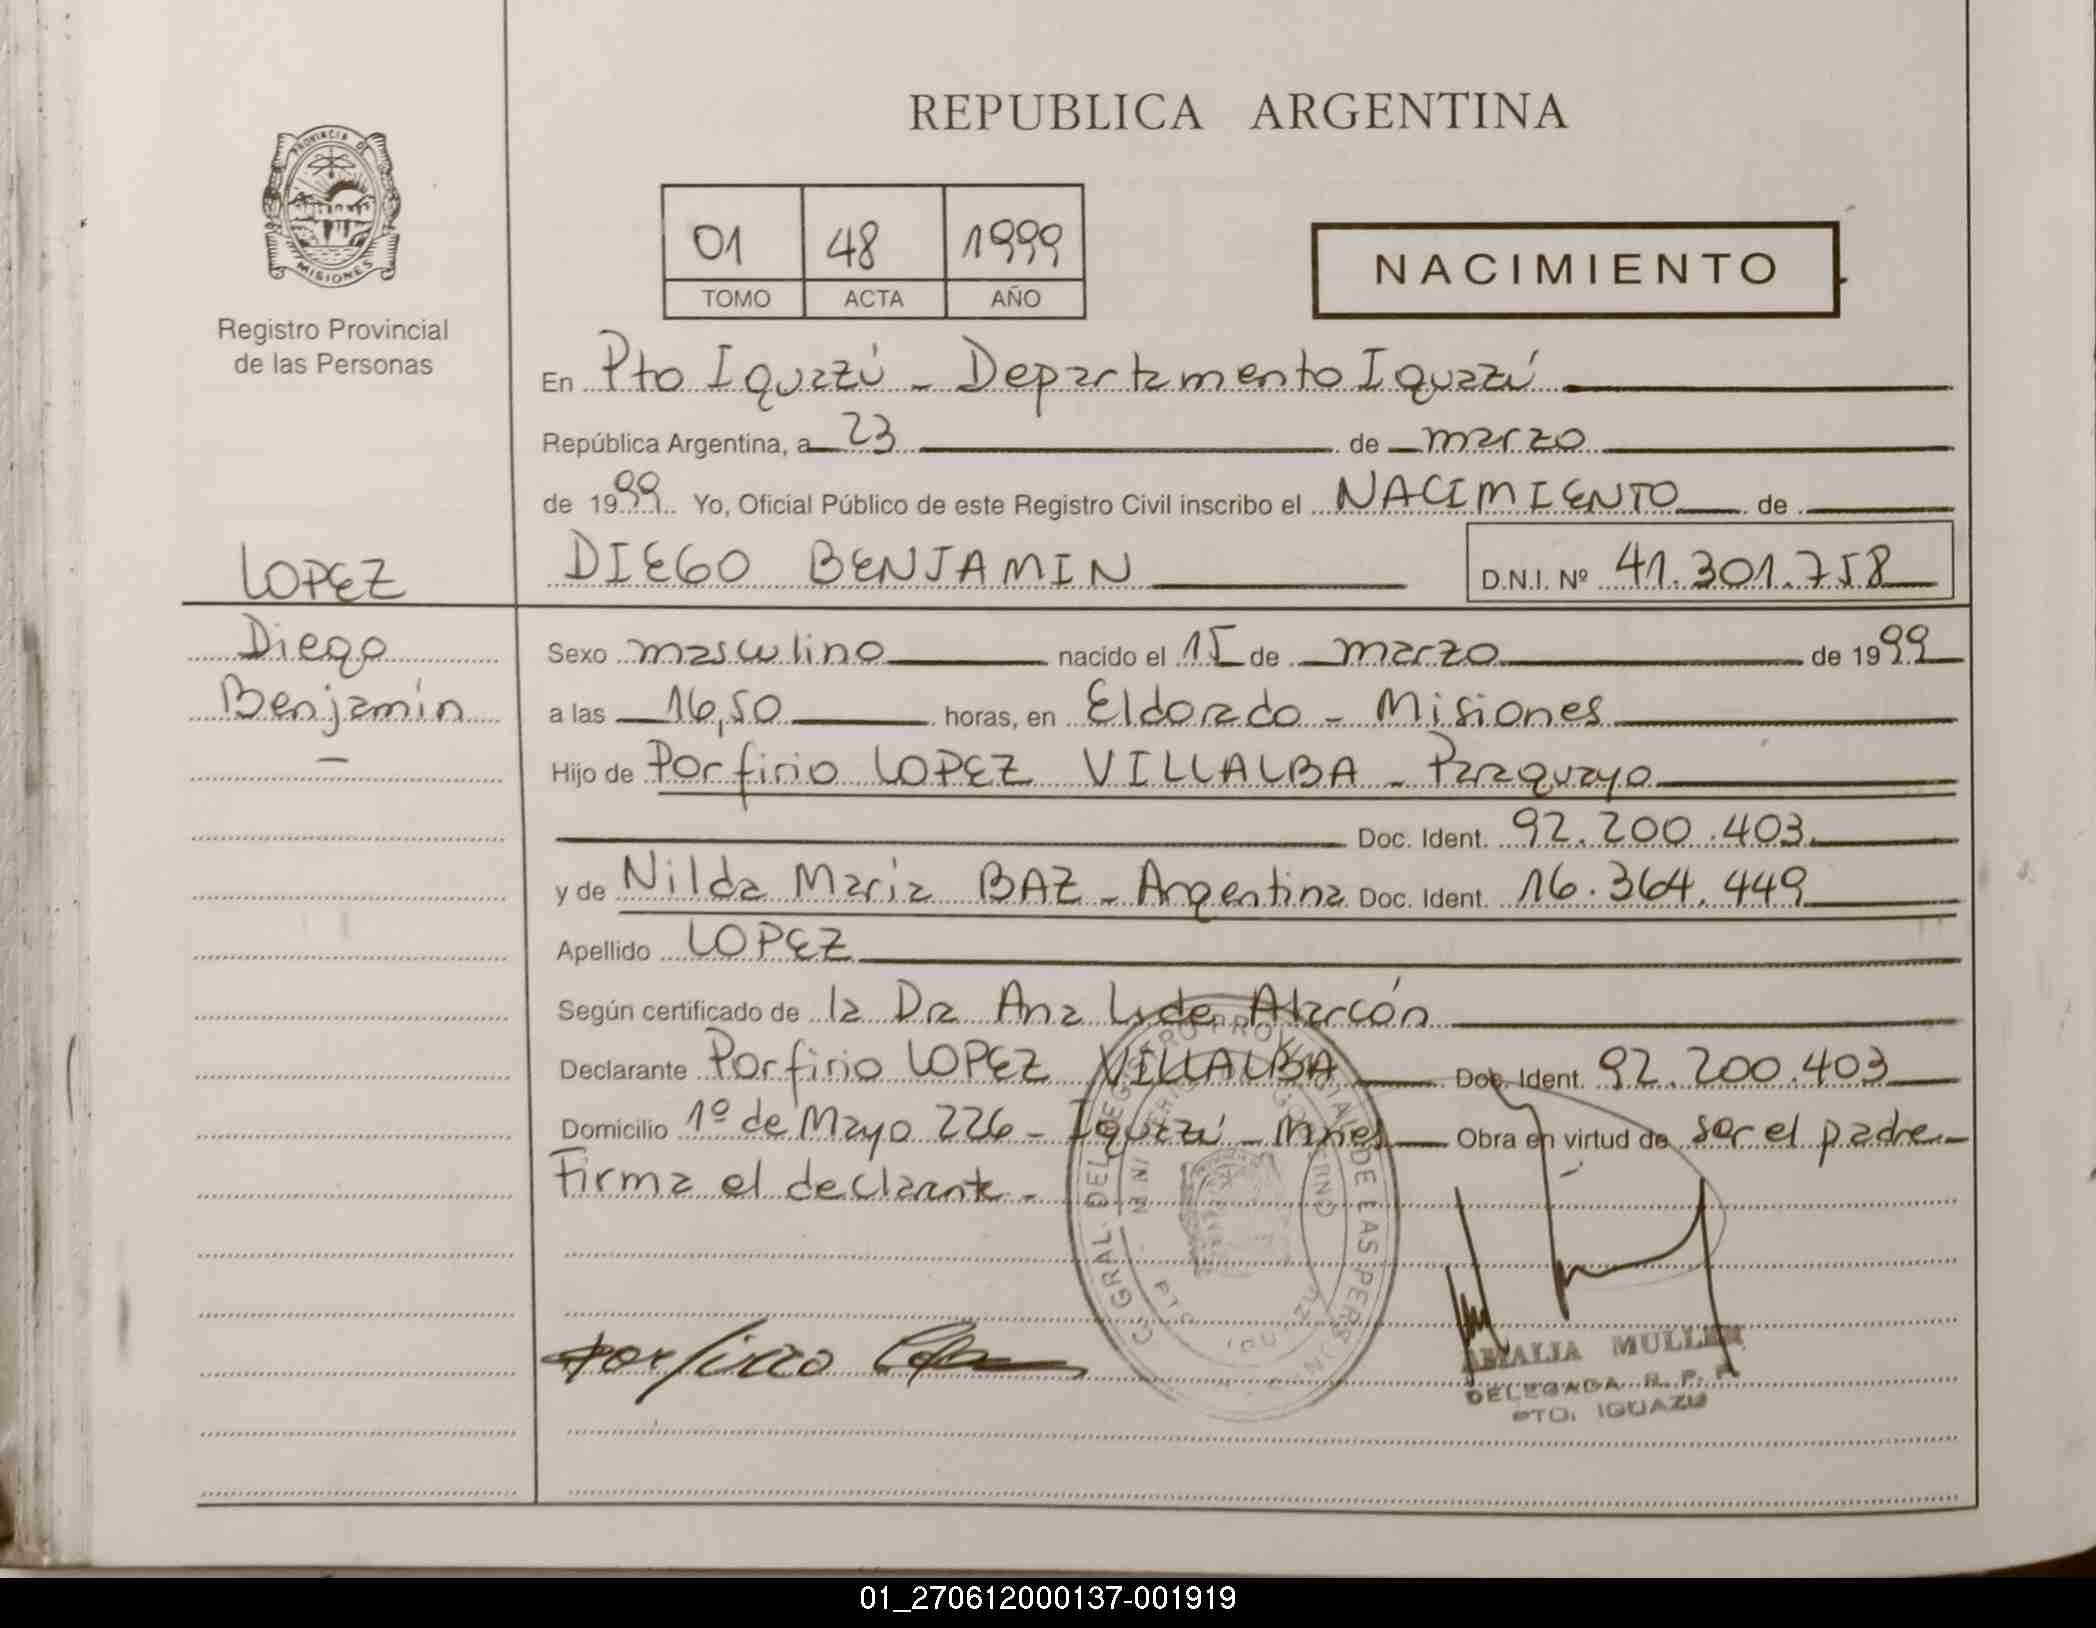 REPUBLICA ARGENTINA
PROVINCIA DE
MISIONES
Registro Provincial
de las Personas
01 48 1999
TOMO ACTA AÑO
NACIMIENTO
En Pto Iguazú - Departamento Iguazú
República Argentina, a 23 de marzo
de 1999 Yo, Oficial Público de este Registro Civil inscribo el NACIMIENTO de
LOPEZ
DIEGO BENJAMIN D.N.I. Nº 41.301.758
Diego
Benjamín
-
Sexo masculino nacido el 15 de marzo de 1999
a las 16,50 horas, en Eldorado - Misiones
Hijo de Porfirio LOPEZ VILLALBA - Paraguayo
Doc. Ident. 92.200.403
y de Nilda Maria BAZ - Argentina Doc. Ident. 16.364.449
Apellido LOPEZ
Según certificado de la Dra Ana Alarcón
Declarante Porfirio LOPEZ VILLALBA Doc. Ident. 92.200.403
Domicilio 1º de Mayo 226 - Iguazú - Mnes Obra en virtud de ser el padre
Firma el declarante -
Porfirio
PTO IGUAZU
AMALIA MULLER
DELEGADA R. P. P.
PTO. IGUAZU
01_270612000137-001919